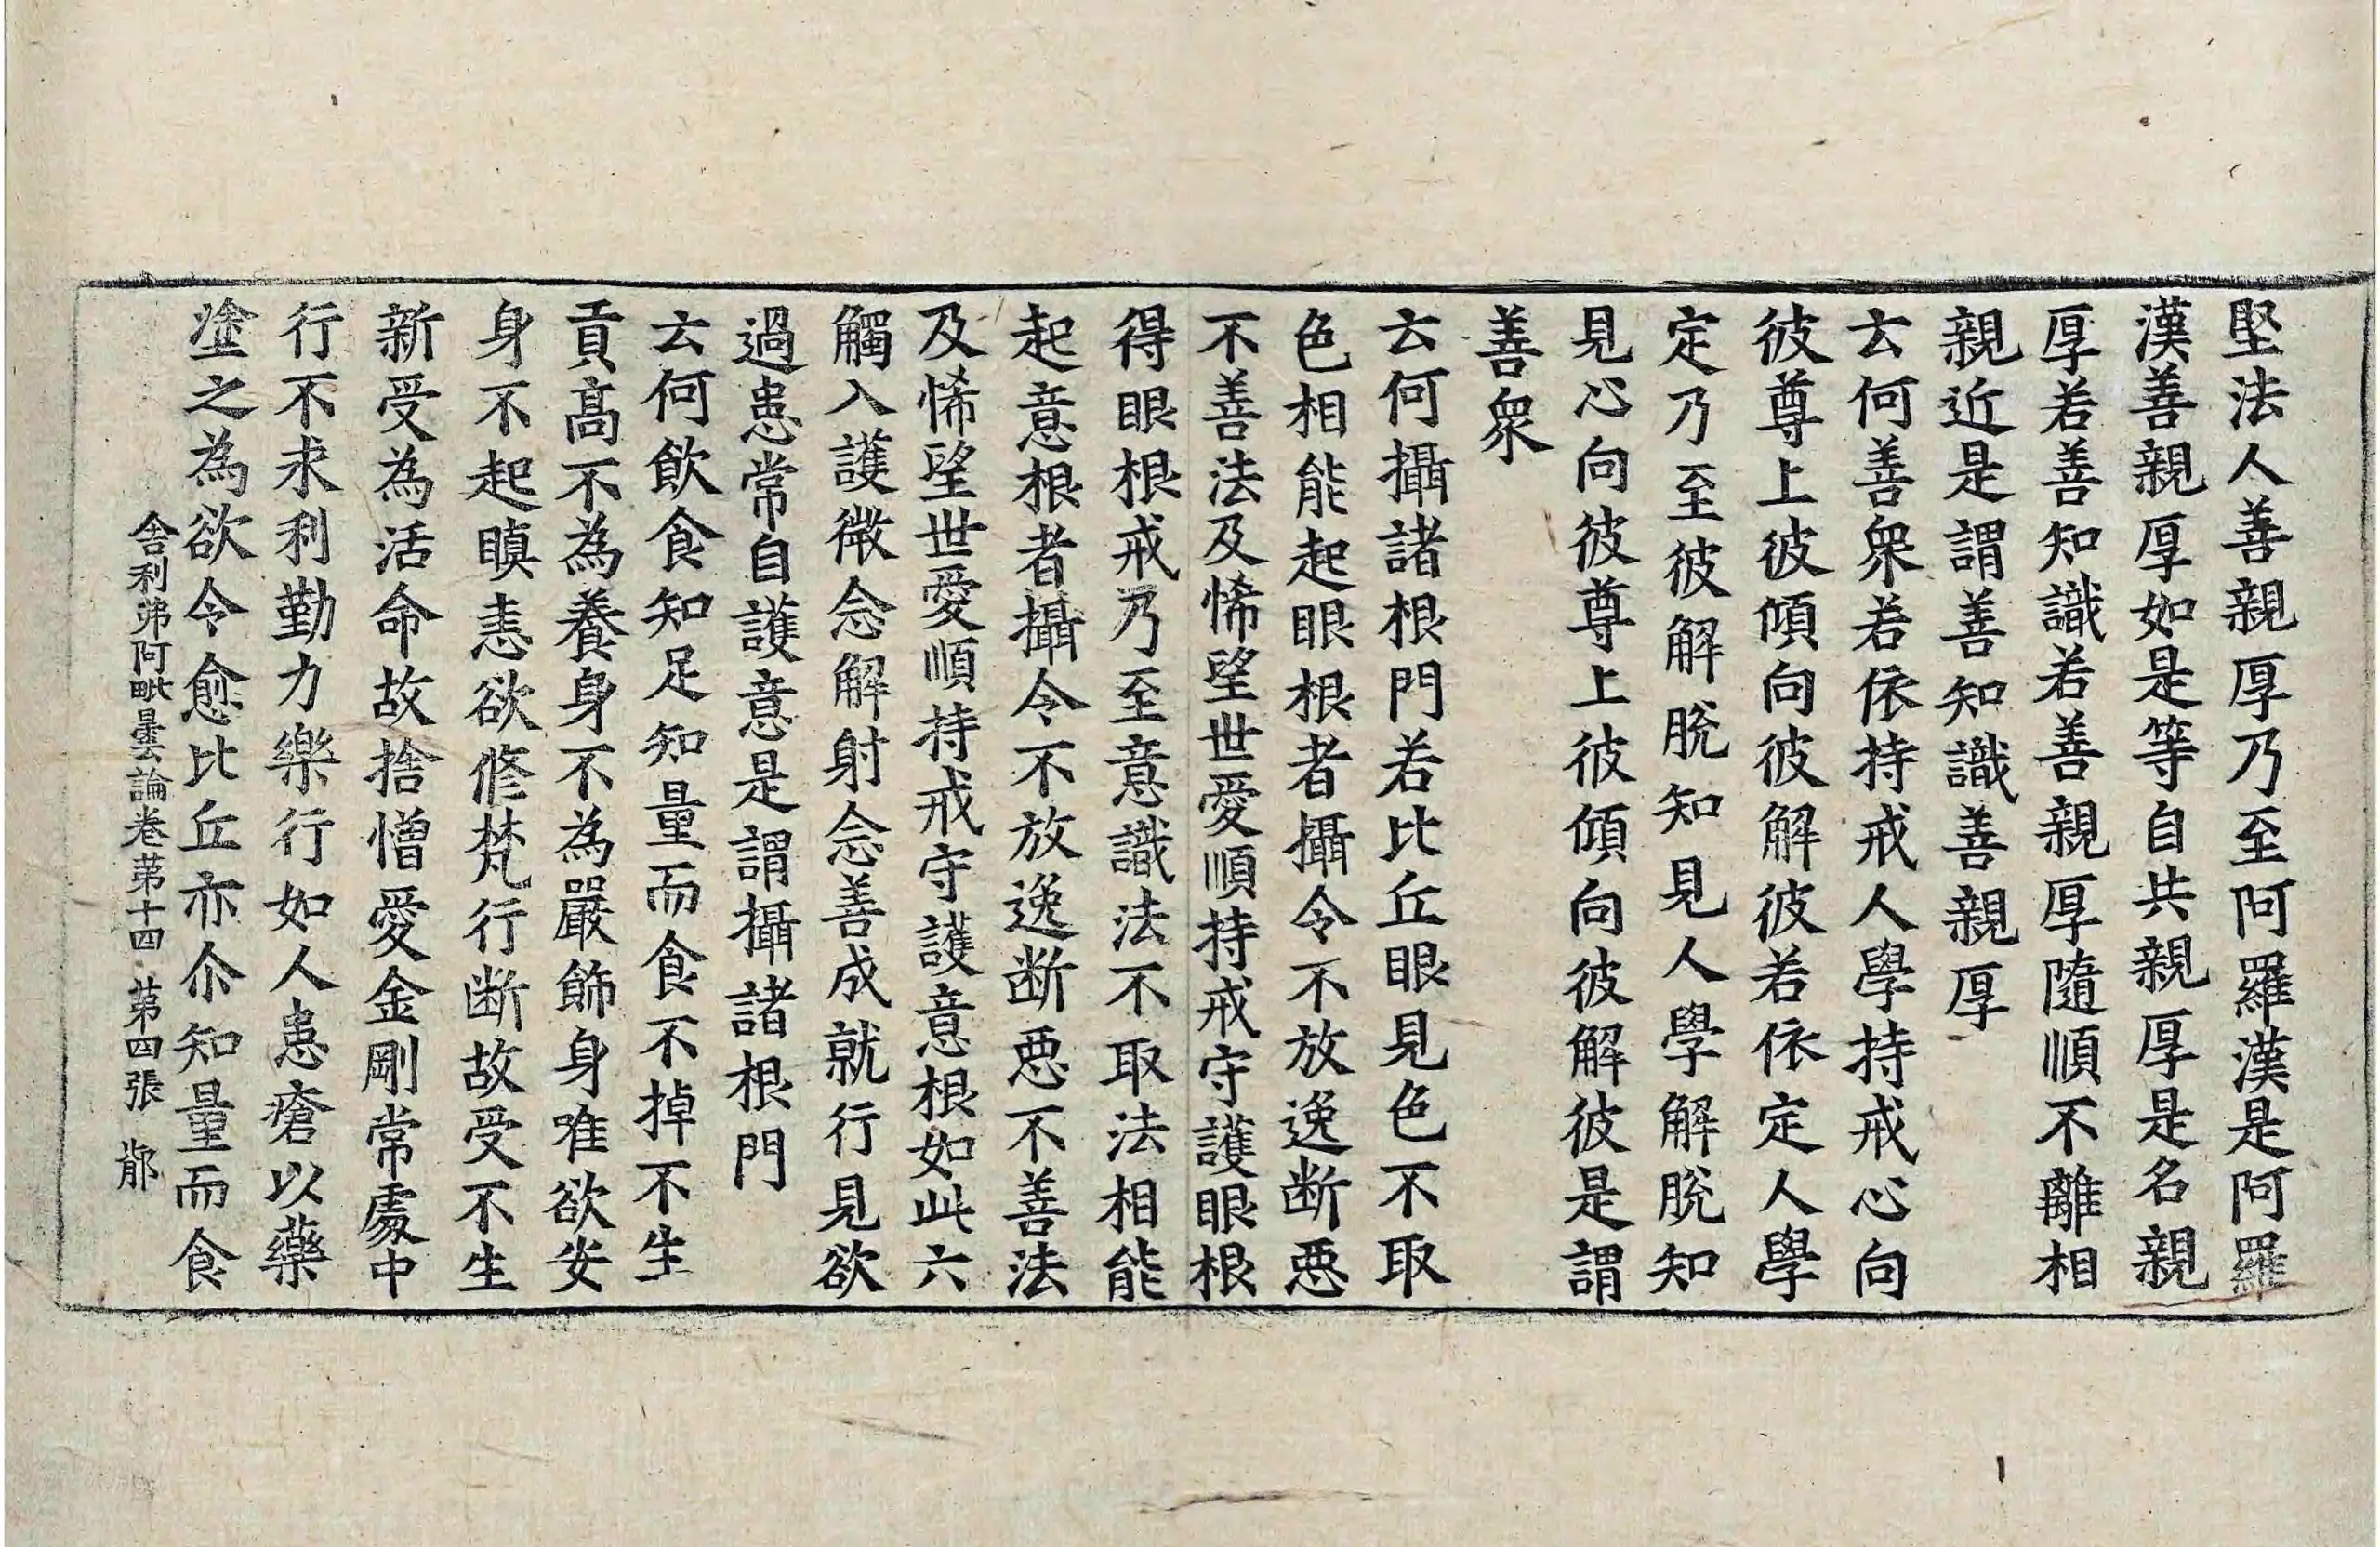 堅法人善親厚乃至阿羅漢是阿羅
漢善親厚如是等自共親厚是名親
厚若善知識若善親厚隨順不離相
親近是謂善知識善親厚
云何善衆若依持戒人學持戒心向
彼尊上彼傾向彼解彼若依定人學
定乃至彼解脫知見人學解脫知
見心向彼尊上彼傾向彼解彼是謂
善衆
云何攝諸根門若比丘眼見色不取
色相能起眼根者攝令不放逸断惡
不善法及悕望世愛順持戒守護眼根
得眼根戒乃至意識法不取法相能
起意根者攝令不放逸断惡不善法
及悕望世愛順持戒守護意根如此六
觸入護微念解射念善成就行見欲
過患常自護意是謂攝諸根門
云何飲食知足知量而食不掉不生
貢髙不為養身不為嚴飾身唯欲安
身不起瞋恚欲修梵行断故受不生
新受為活命故捨憎愛金剛常處中
行不求利勤力樂行如人患瘡以藥
塗之為欲令愈比丘亦尒知量而食
舎利弗阿毗曇論卷苐十四 苐四張